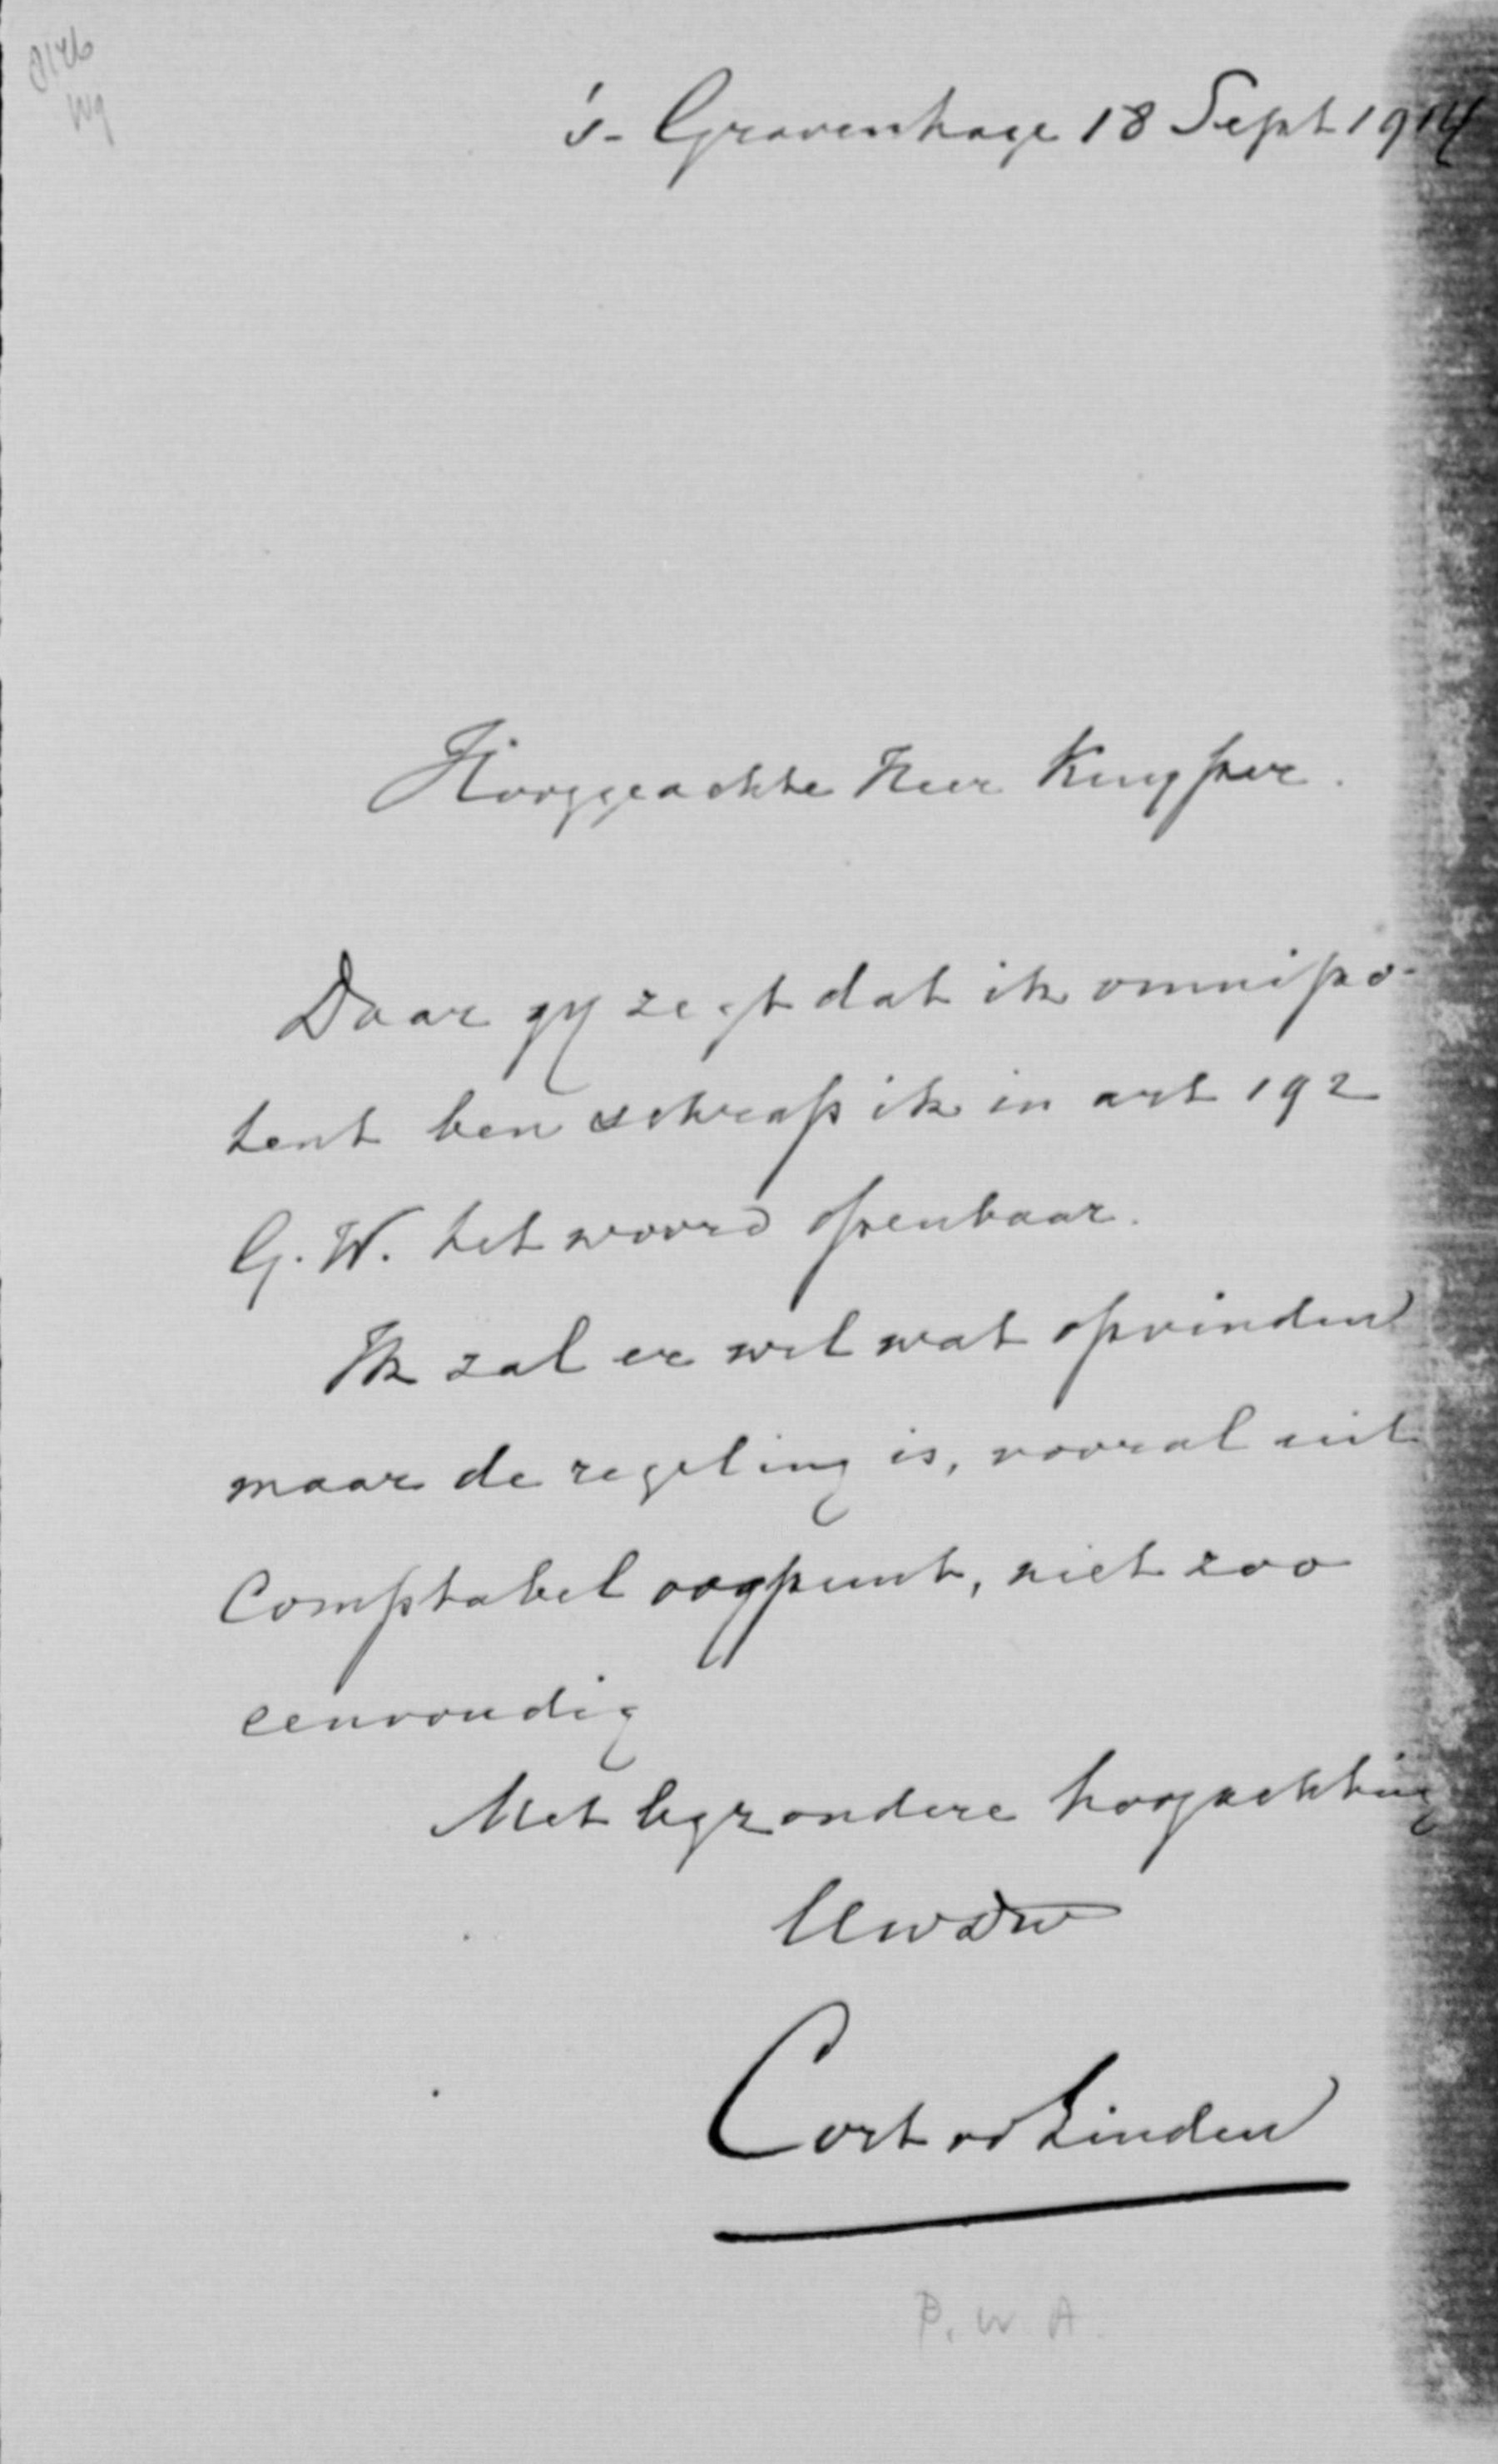 's-Gravenhage 18 Sept 1914
Hooggeachte Heer Kuyper.
Daar gij zegt dat ik omnipo-
tent ben schrap ik in art 192
G.W. het woord openbaar.
Ik zal er wel wat opvinden
maar de regeling is, vooral uit
Comptabel oogpunt, niet zoo
eenvoudig
Met bijzondere hoogachting
Uwdw
Cort vd Linden
P. W. A.